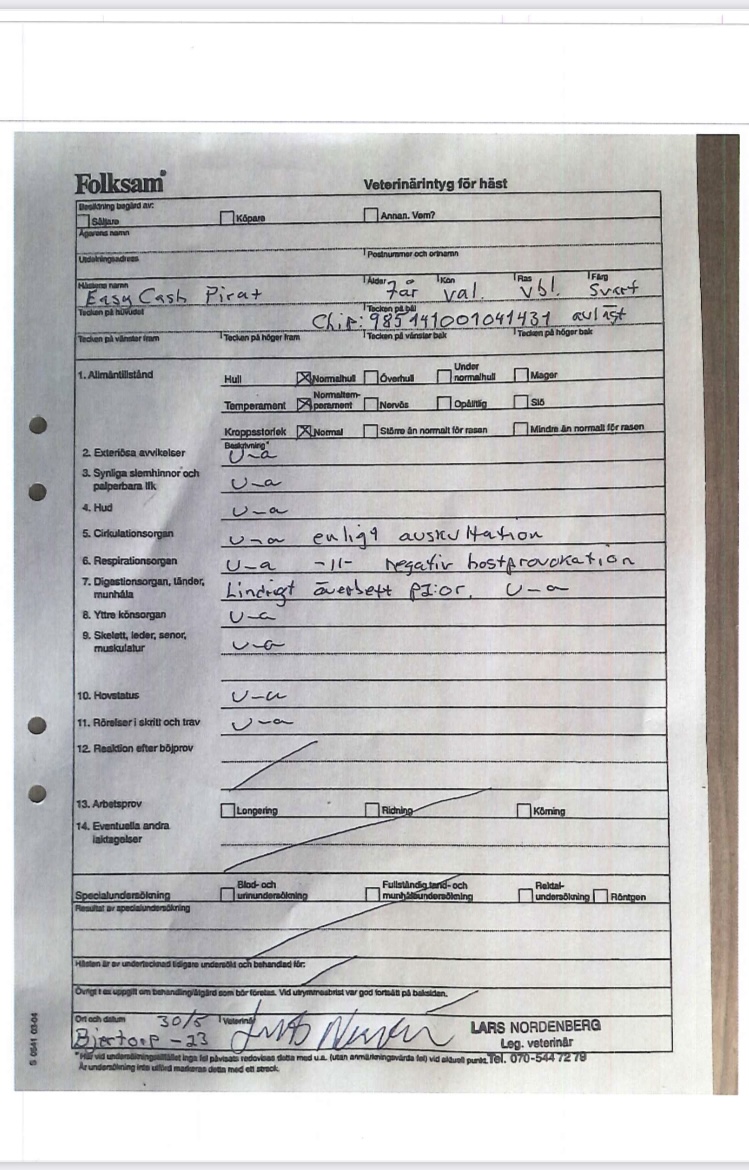 Folksam
Veterinärintyg för häst
Besiktning begärd av:
Säljare Köpare Annan. Vem?
Ägarens namn
Utdelningsadress Postnummer och ortnamn
Hästens namn Ålder Kön Ras Färg
Easy Cash Pirat 7år val. vbl. Svart
Tecken på huvudet Tecken på bål
Chip: 985141001041431 avläst
Tecken på vänster fram Tecken på höger fram Tecken på vänster bak Tecken på höger bak
1. Allmäntillstånd Hull Normalhull Överhull Under normalhull Mager
Temperament Normaltemperament Nervös Opålitlig Slö
Kroppsstorlek Normal Större än normalt för rasen Mindre än normalt för rasen
Beskrivning*
2. Exteriösa avvikelser U-a
3. Synliga slemhinnor och
palperbara lfk U-a
4. Hud U-a
5. Cirkulationsorgan U-a enligt auskultation
6. Respirationsorgan U-a -11- negativ hostprovokation
7. Digestionsorgan, tänder,
munhåla Lindrigt överbett U-a
8. Yttre könsorgan U-a
9. Skelett, leder, senor,
muskulatur U-a
10. Hovstatus U-a
11. Rörelser i skritt och trav U-a
12. Reaktion efter böjprov
13. Arbetsprov Longering Ridning Körning
14. Eventuella andra
iakttagelser
Specialundersökning Blod- och urinundersökning Fullständig tand- och munhålsundersökning Rektal-undersökning Röntgen
Resultat av specialundersökning
Hästen är av undertecknad tidigare undersökt och behandlad för:
Övrigt t ex uppgift om behandling/åtgärd som bör företas. Vid utrymmesbrist var god fortsätt på baksidan.
Ort och datum 30/5 Veterinär
Bjertorp -23
LARS NORDENBERG
Leg. veterinär
Tel. 070-544 72 79
*Har vid undersökningstillfället inga fel påvisats redovisas detta med u.a. (utan anmärkningsvärda fel) vid aktuell punkt.
Är undersökning inte utförd markeras detta med ett streck.
S 0541 03-04